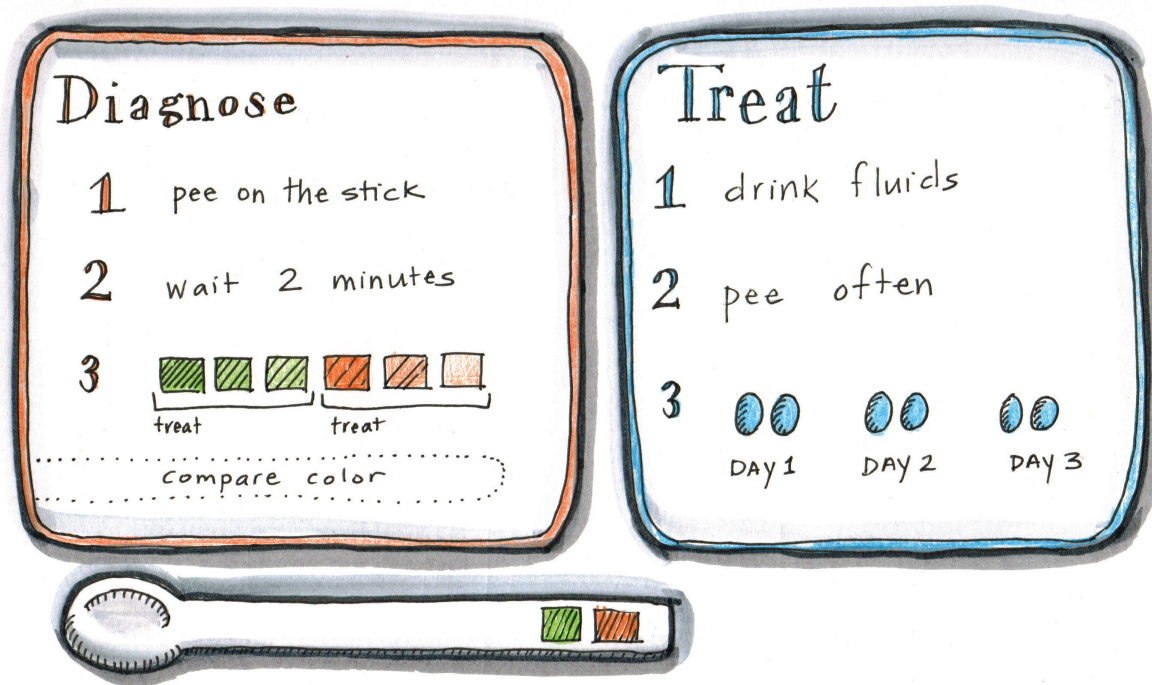 Diagnose
1 pee on the stick
2 wait 2 minutes
3
treat treat
compare color
Treat
1 drink fluids
2 pee often
3
DAY 1 DAY 2 DAY 3